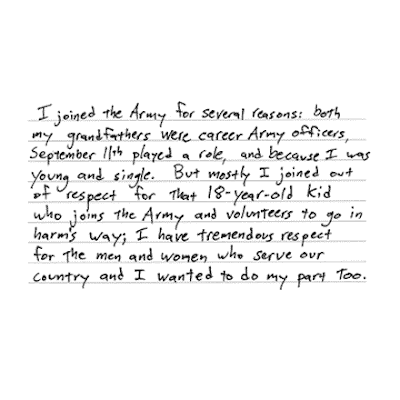 I joined the Army for several reasons: both
my grandfathers were career Army officers,
September 11th played a role, and because I was
young and single. But mostly I joined out
of respect for that 18-year-old kid
who joins the Army and volunteers to go in
harm's way; I have tremendous respect
for the men and women who serve our
country and I wanted to do my part too.